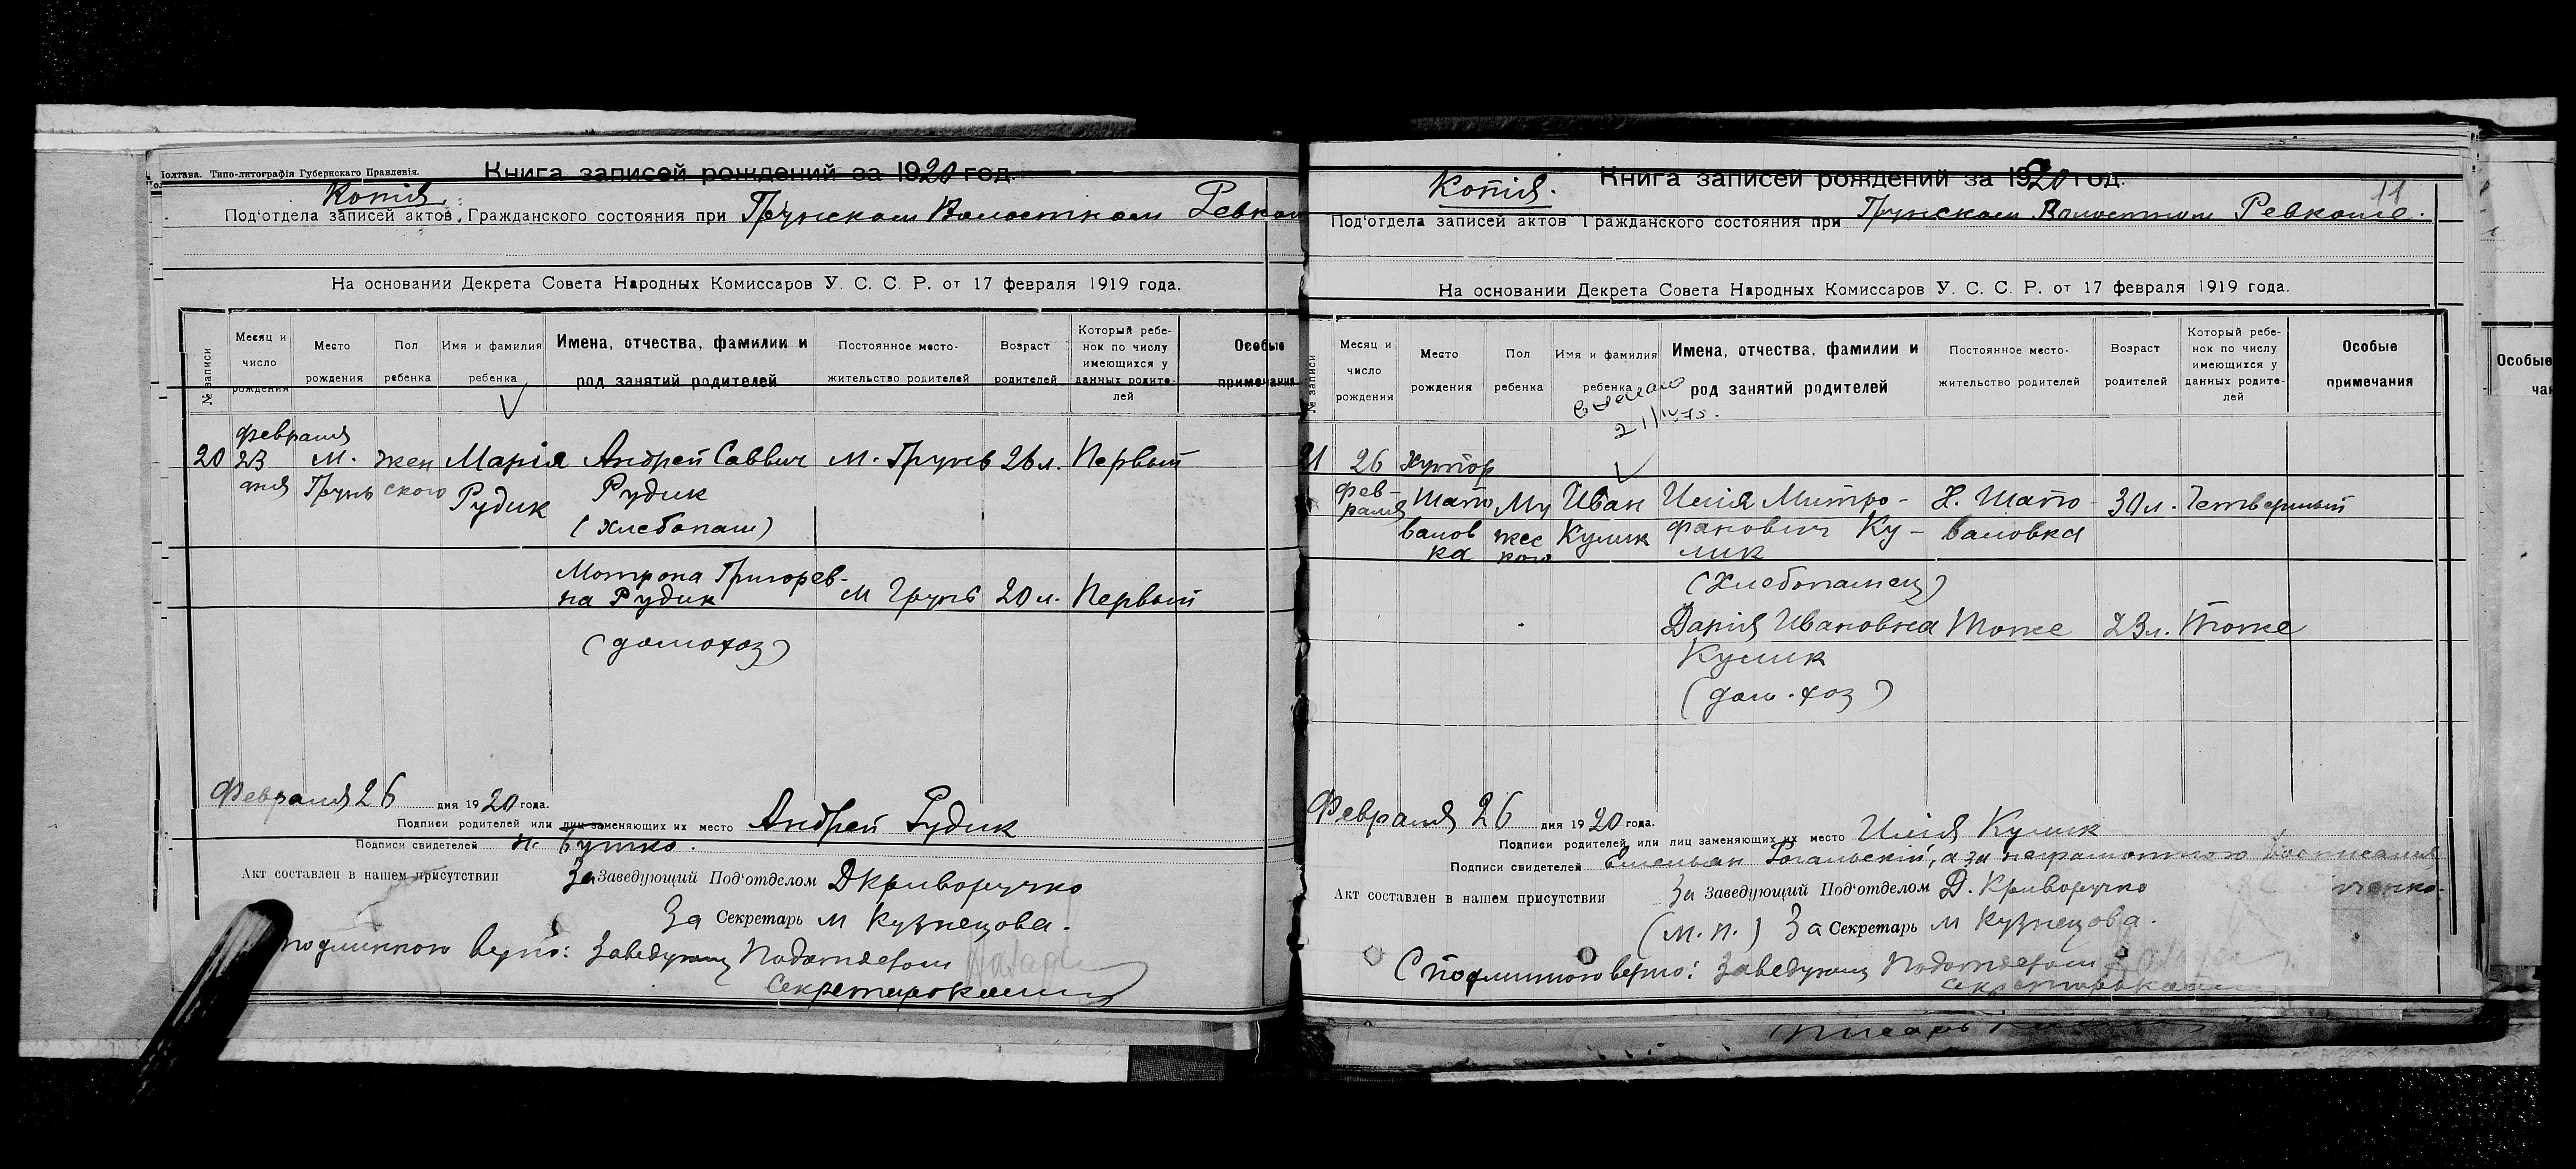 Полтава. Типо-литографія Губернскаго Правленія.
Книга записей рождений за 1920 год.
Копія
Под'отдела записей актов Гражданского состояния при Грунском Волостном Ревком
На основании Декрета Совета Народных Комиссаров У. С. С. Р. от 17 февраля 1919 года.
№ записи
Месяц и число рождения
Место рождения
Пол ребенка
Имя и фамилия ребенка
Имена, отчества, фамилии и род занятий родителей
Постоянное место-жительство родителей
Возраст родителей
Который ребе-нок по числу имеющихся у данных родите-лей
Особые примечания
Февраля
20 23 М. жен Марія Андрей Саввич М. Грунь 26 л. Первый
дня Грунь ского Рудик Рудик
(хлебопаш)
Мотрона Григорев-
на Рудик М Грунь 20 л. Первый
(домохоз)
Февраля 26 дня 1920 года.
Подписи родителей или лиц заменяющих их место Андрей Рудик
Подписи свидетелей Н. Бутко.
Акт составлен в нашем присутствии За Заведующий Под'отделом Д Криворучко
За Секретарь М Кузнецова.
подлинного верно: Заведующ Подотделом
Секретарь
Книга записей рождений за 1920 год.
11
Копія.
Под'отдела записей актов Гражданского состояния при Грунском Волостном Ревкоме.
На основании Декрета Совета Народных Комиссаров У. С. С. Р. от 17 февраля 1919 года.
№ записи
Месяц и число рождения
Место рождения
Пол ребенка
Имя и фамилия ребенка
Имена, отчества, фамилии и род занятий родителей
Постоянное место-жительство родителей
Возраст родителей
Который ребе-нок по числу имеющихся у данных родите-лей
Особые примечания
21/IV 75.
21 26 Хутор
Фев- Шапо Му Иван Илія Митро- Х. Шапо- 30 л. Четвертый
раля валов жес Кулик фанович Ку- валовка
ка кого лик
(Хлебопашец)
Дарія Ивановна Тоже 23 л. Тоже
Кулик
(дом. хоз)
Февраля 26 дня 1920 года.
Подписи родителей или лиц заменяющих их место Илія Кулик
Подписи свидетелей Емельян Гогальскій, а за неграмотного
Акт составлен в нашем присутствии За Заведующий Под'отделом Д. Криворучко
(М. П.) За Секретарь М Кузнецова.
С подлинного верно: Заведующ Подотделом
Секретарь
Особые